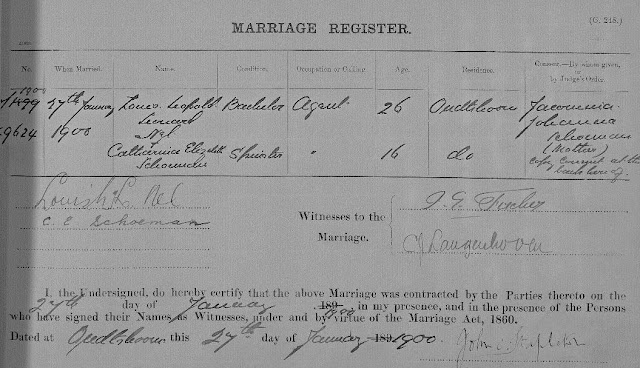 (G. 218.)
MARRIAGE REGISTER.
When Married. Name. Condition. Occupation or Calling. Age. Residence. Consent.—By whom given, or by Judge's Order.
1900
27th January Louis Leopold Bachelor Agent 26 Oudtshoorn Jacomina
9624 1900 Leonard Johanna
Nel Schoeman
Catharina Elizabeth Spinster " 16 do (Mother)
Schoeman Copy consent at the
back hereof.
Louis L. Nel
C. E. Schoeman
Witnesses to the
Marriage.
J. Langenhoven
I, the Undersigned, do hereby certify that the above Marriage was contracted by the Parties thereto on the
27th day of January 189 1900 in my presence, and in the presence of the Persons
who have signed their Names as Witnesses, under and by virtue of the Marriage Act, 1860.
Dated at Oudtshoorn this 27th day of January 189 1900.